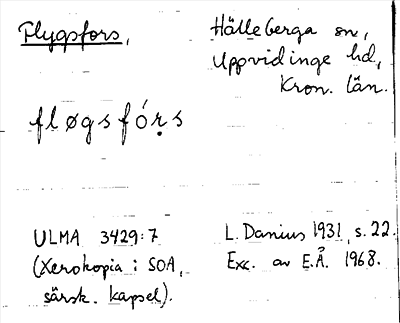 Flygsfors,
Hälleberga sn,
Uppvidinge hd,
Kron. län.
fløgsfórṣ
ULMA 3429:7
(Xerokopia i SOA,
särsk. kapsel).
L. Danius 1931, s. 22.
Exc. av E.Å. 1968.